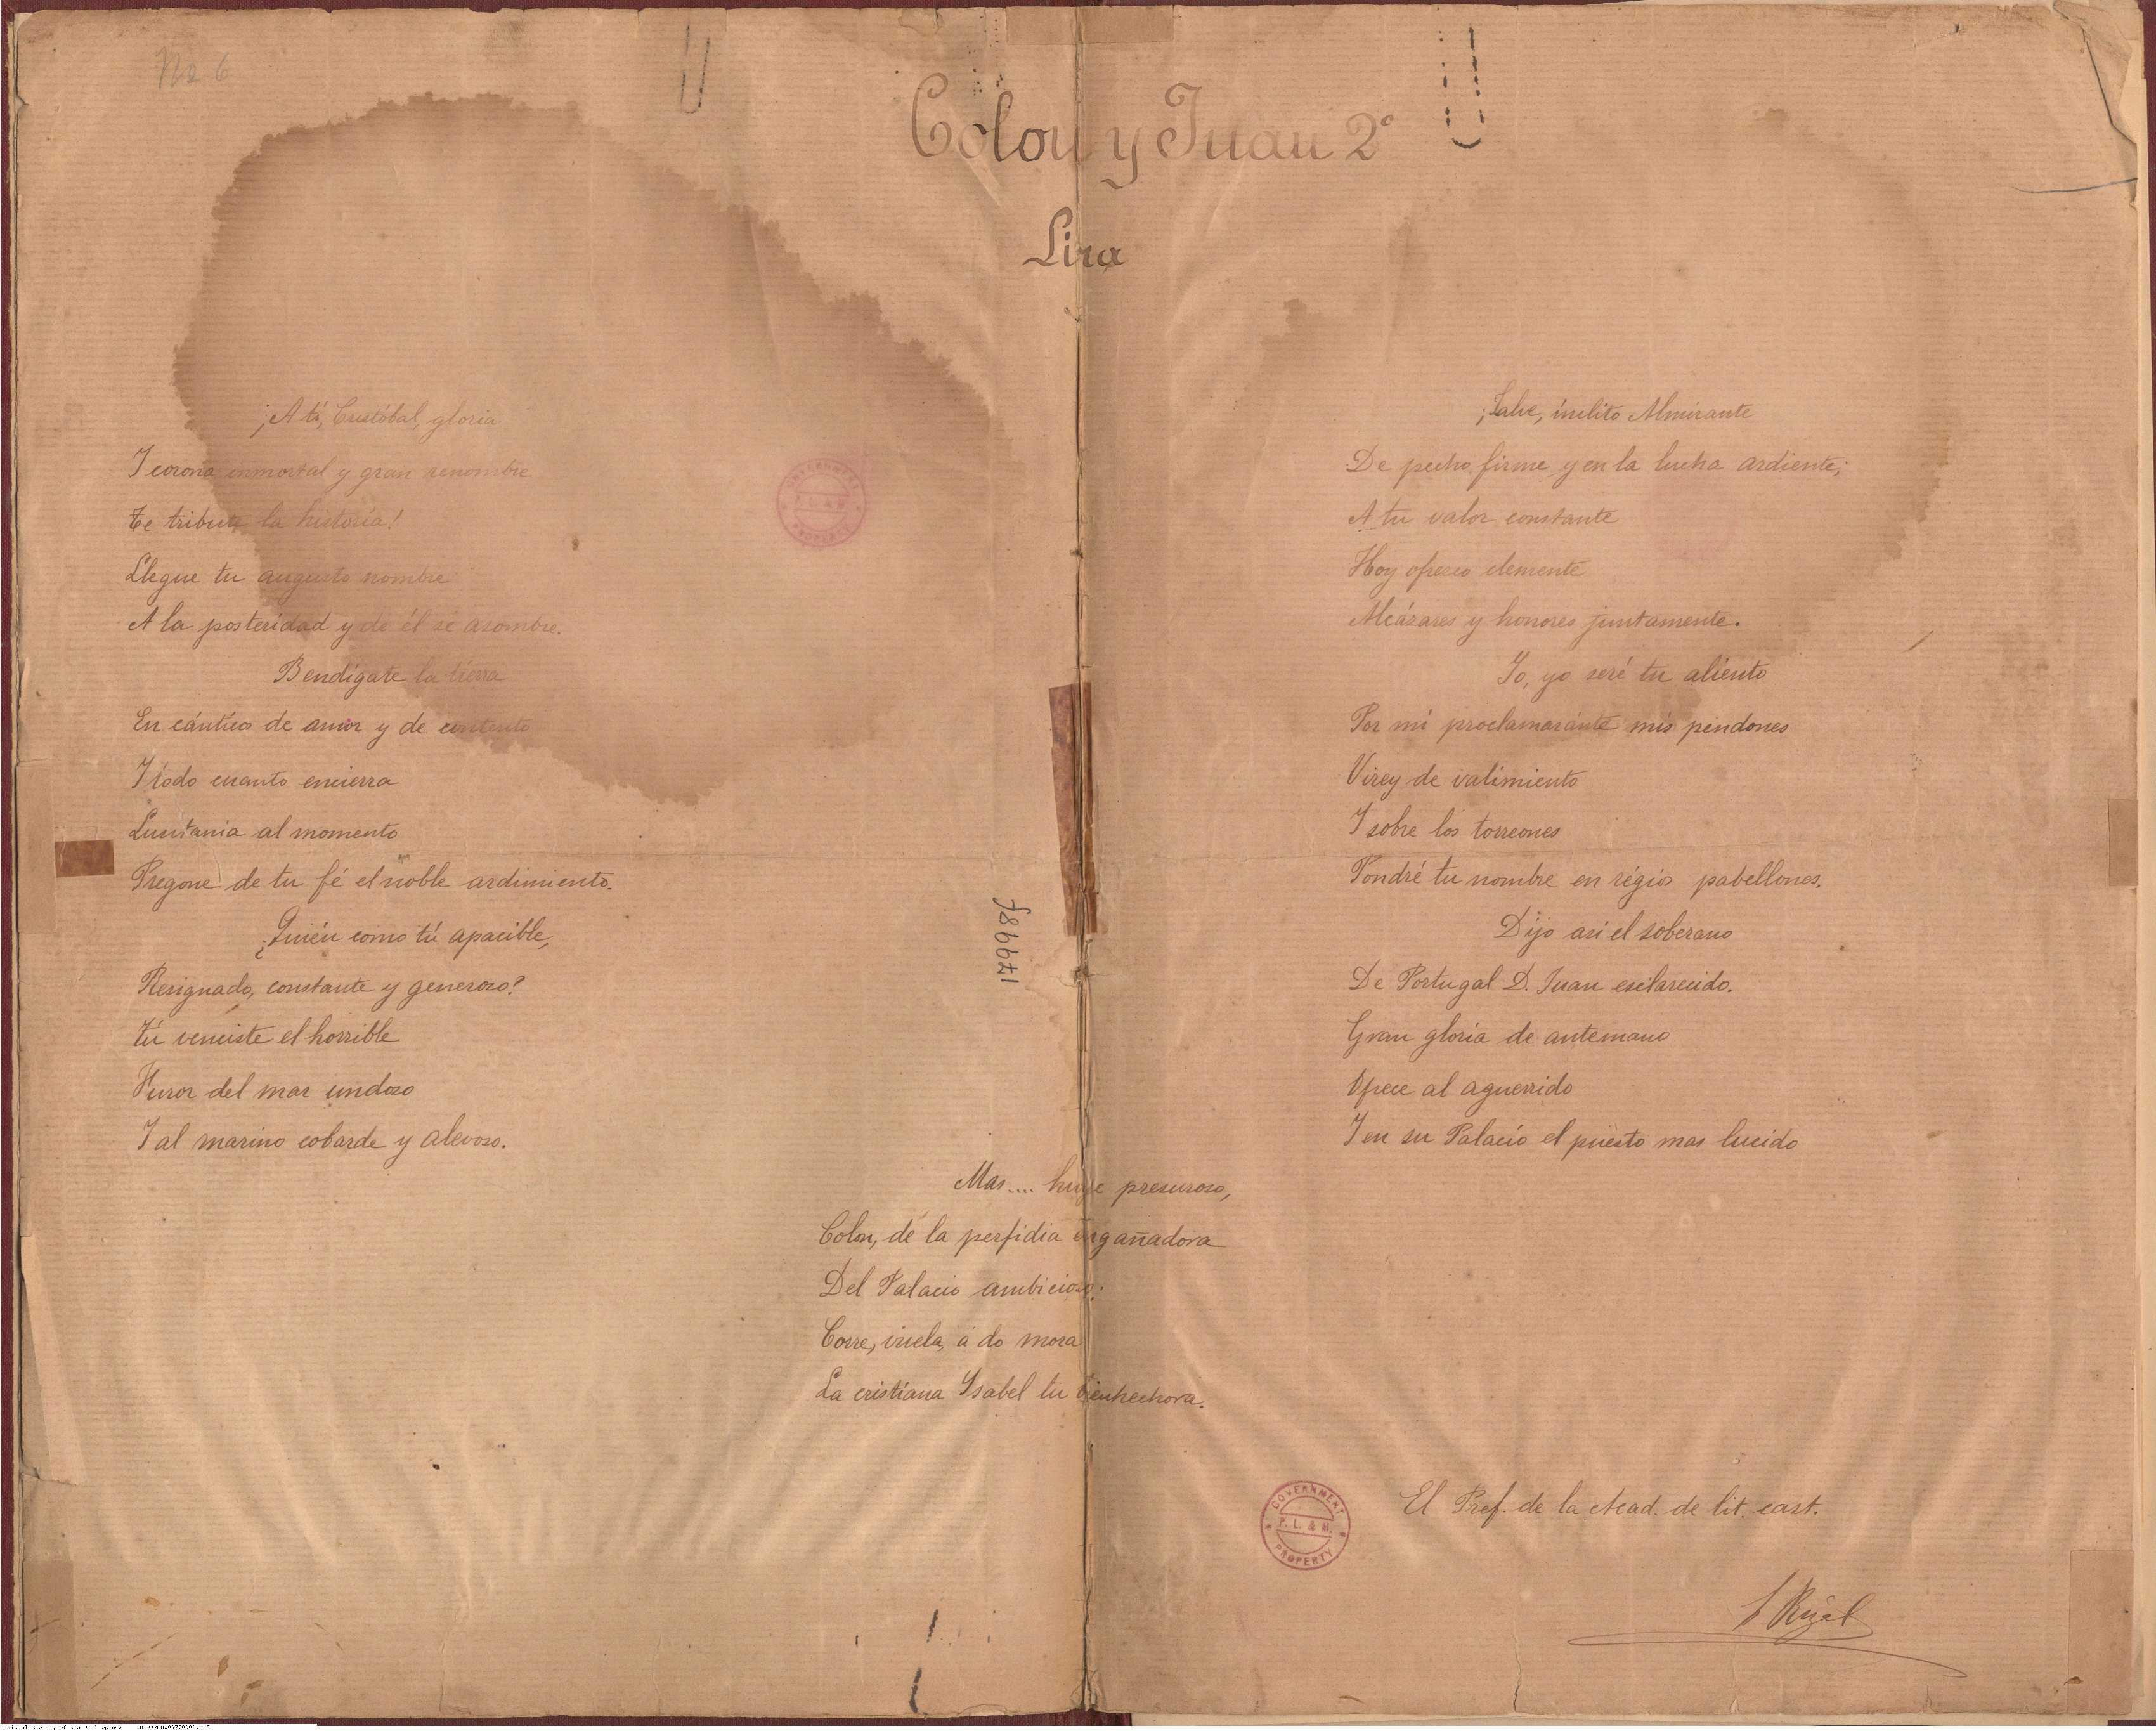 No 6
Colon y Juan 2º
Lira
¡A tí, Cristóbal, gloria
I corona inmortal y gran renombre
Te tribute la historia!
Llegue tu augusto nombre
A la posteridad y de él se asombre.
Bendígate la tierra
En cántico de amor y de contento
I todo cuanto encierra
Lusitania al momento
Pregone de tu fé el noble ardimiento.
¿Quién como tú apacible,
Resignado, constante y generoso?
Tú venciste el horrible
Furor del mar undoso
I al marino cobarde y alevoso.
¡Salve, ínclito Almirante
De pecho firme y en la lucha ardiente;
A tu valor constante
Hoy ofrezco clemente
Alcázares y honores juntamente.
Io, yo seré tu aliento
Por mi proclamaránte mis pendones
Virey de valimiento
I sobre los torreones
Pondré tu nombre en régios pabellones.
Dijo asi el soberano
De Portugal D. Juan esclarecido.
Gran gloria de antemano
Ofrece al aguerrido
I en su Palacio el puesto mas lucido
Mas.... huye presuroso,
Colon, de la perfidia engañadora
Del Palacio ambicioso:
Corre, vuela, á do mora
La cristiana Ysabel tu bienhechora.
El Pref. de la Acad. de lit. cast.
J Rizal
GOVERNMENT
P. L. & M.
PROPERTY
GOVERNMENT
P. L. & M.
PROPERTY